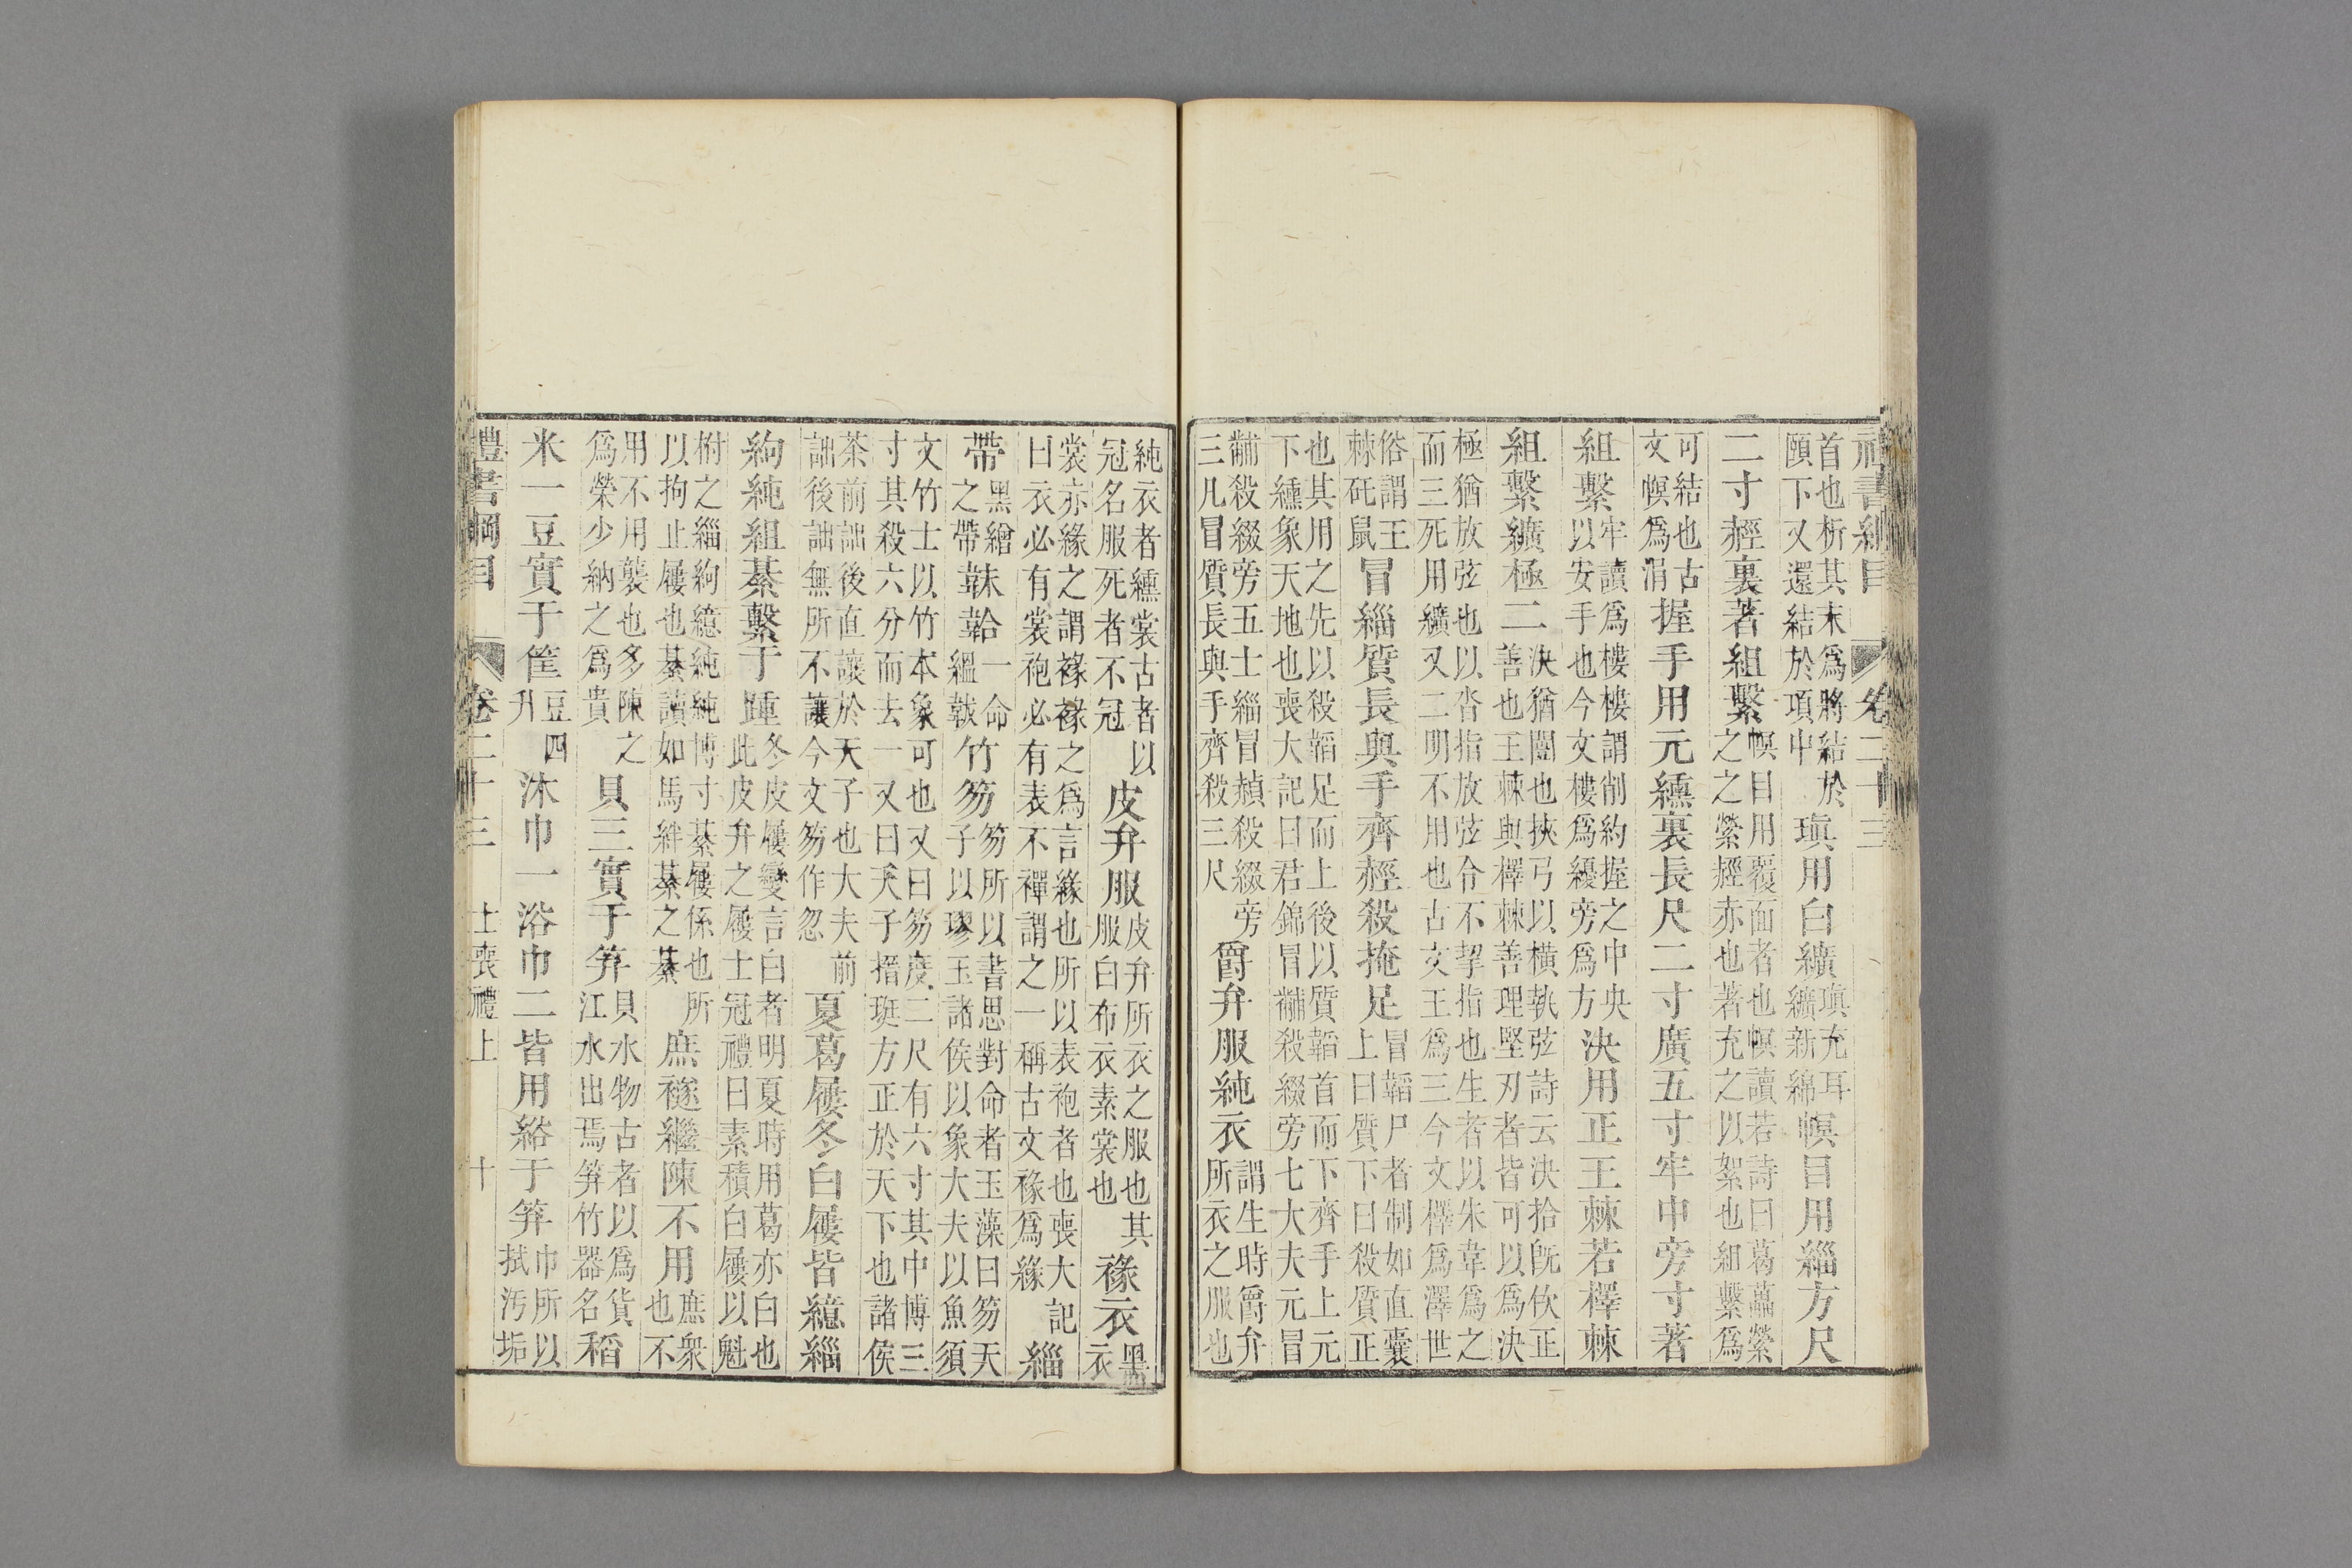 禮書綱目　卷二十三
首也析其末爲將結於
頤下又還結於項中
瑱用白纊
瑱充耳
纊新綿
幎目用緇方尺
二寸䞓裏著組繫
幎目用覆面者也幎讀若詩曰葛藟縈
之之縈䞓赤也著充之以絮也組繫爲
可結也古
文幎爲涓
握手用元纁裏長尺二寸廣五寸牢中旁寸著
組繫
牢讀爲樓樓謂削約握之中央
以安手也今文樓爲緩旁爲方
決用正王棘若檡棘
組繫纊極二
決猶闓也挾弓以橫執弦詩云決拾旣佽正
善也王棘與檡棘善理堅刃者皆可以爲決
極猶放弦也以沓指放弦令不挈指也生者以朱韋爲之
而三死用纊又二明不用也古文王爲三今文檡爲澤世
俗謂王
棘矺鼠
冒緇質長與手齊䞓殺掩足
冒韜尸者制如直囊
上曰質下曰殺質正
也其用之先以殺韜足而上後以質韜首而下齊手上元
下纁象天地也喪大記曰君錦冒黼殺綴旁七大夫元冒
黼殺綴旁五士緇冒赬殺綴旁
三凡冒質長與手齊殺三尺
爵弁服純衣
謂生時爵弁
所衣之服也
純衣者纁裳古者以
冠名服死者不冠
皮弁服
皮弁所衣之服也其
服白布衣素裳也
褖衣
黑
衣
裳赤緣之謂褖褖之爲言緣也所以表袍者也喪大記
曰衣必有裳袍必有表不襌謂之一稱古文褖爲緣
緇
帶
黑繒
之帶
韎韐
一命
縕韍
竹笏
笏所以書思對命者玉藻曰笏天
子以璆玉諸侯以象大夫以魚須
文竹士以竹本象可也又曰笏度二尺有六寸其中博三
寸其殺六分而去一又曰天子搢珽方正於天下也諸侯
荼前詘後直讓於天子也大夫前
詘後詘無所不讓今文笏作忽
夏葛屨冬白屨皆繶緇
絇純組綦繫于踵
冬皮屨變言白者明夏時用葛亦白也
此皮弁之屨士冠禮曰素積白屨以魁
柎之緇絇繶純純博寸綦屨係也所
以拘止屨也綦讀如馬絆綦之綦
庶襚繼陳不用
庶衆
也不
用不用襲也多陳之
爲榮少納之爲貴
貝三實于笲
貝水物古者以爲貨
江水出焉笲竹器名
稻
米一豆實于筐
豆四
升
沐巾一浴巾二皆用綌于笲
巾所以
拭汚垢
禮書綱目　卷二十三　士喪禮上　十